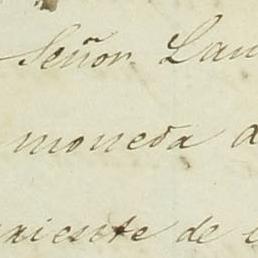 Señor Lau
moneda a
xiente de